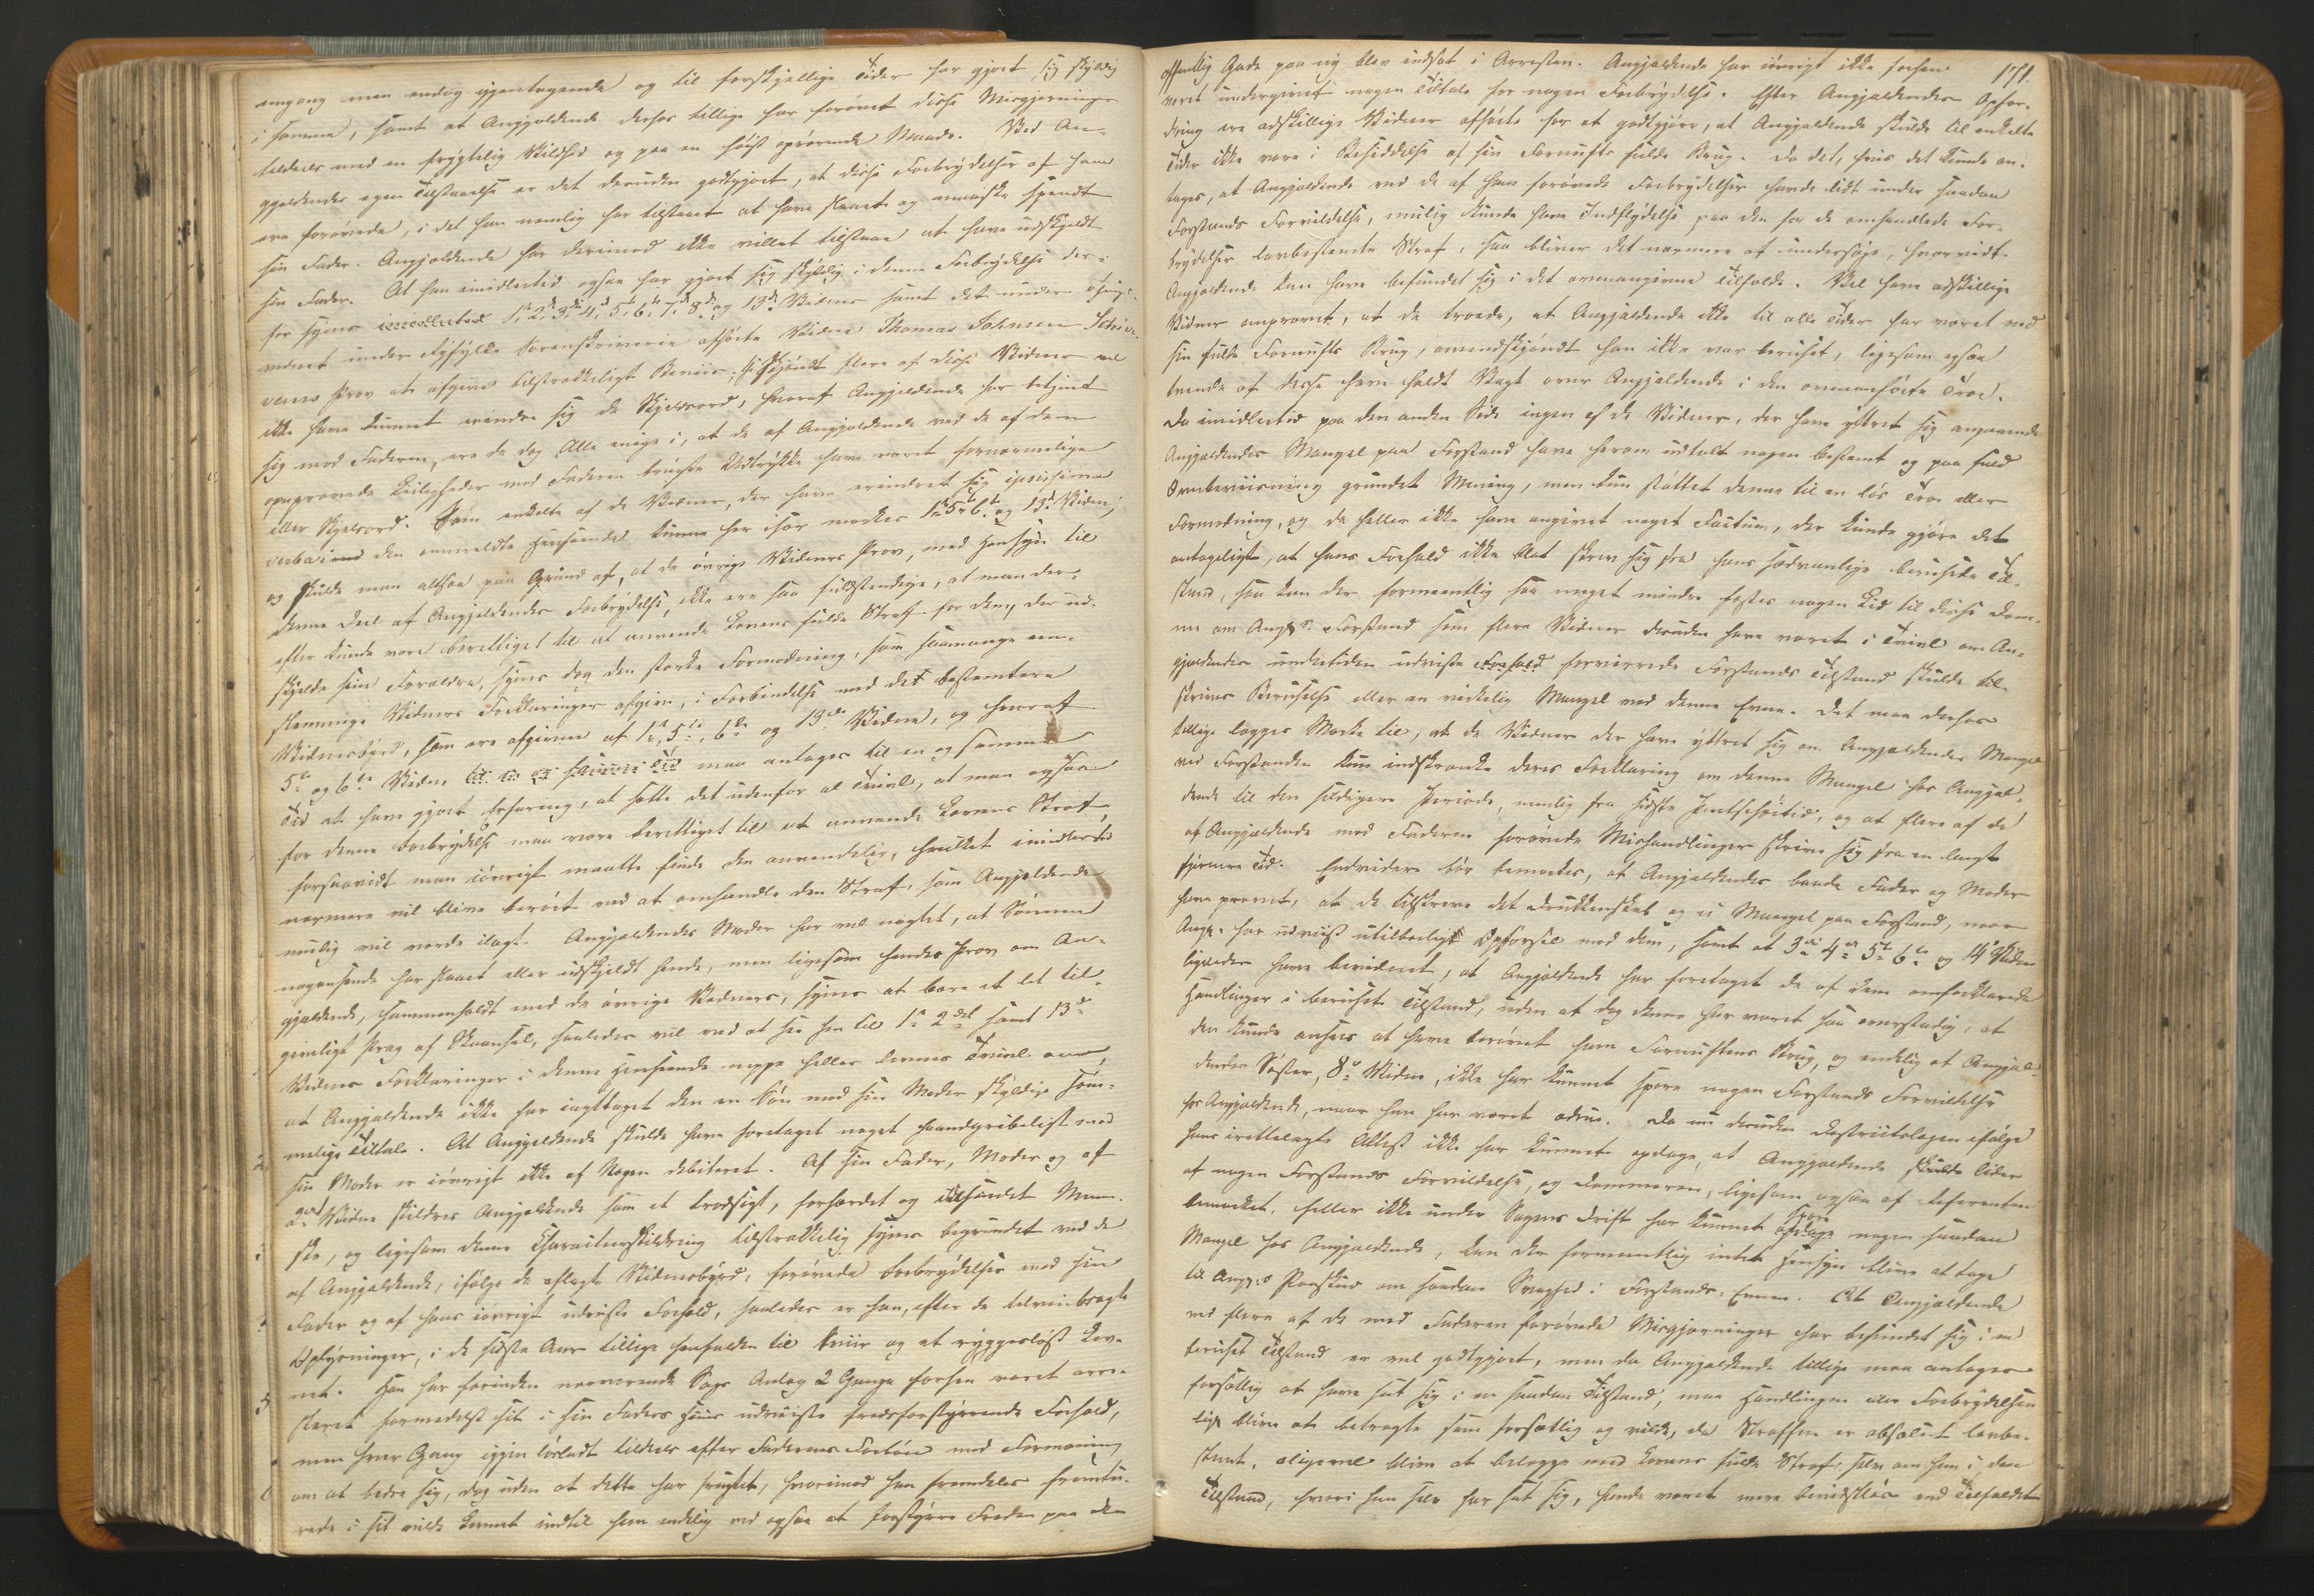 engang men endog gjentagende og til forskjellige Tider har gjort sig skyldig
i samme, samt at Angjældende derhos tillige har forøvet disse Misgjerninger
tildeels med en frygtelig Vildhed og paa en høist oprørende Maade. Ved An-
gjældendes egen Tilstaaelse er det desuden godtgjort, at disse Forbrydelser af ham
ere forøvede, i det han nemlig har tilstaaet at have slaaet og ennviske spændt
sin Fader. Angjældende har derimod ikke villet tilstaae at have udskjeldt
sin Fader. At han imidlertid ogsaa har gjort sig skyldig i denne Forbrydelse der-
for synes imidlertid 1ste 2det 3die 4de 5te 6te 7de 8de og 13de Vidner samt det under
under Ryfylke Sorenskriverie afhørte Vidne Thomas Johnsen Schie-
venes Prov at afgive tilstrækkeligt Beviis. Skjøndt flere af disse Vidner vel
ikke have kunnet erindre sig de Skjelsord, hvoraf Angjældende har betjent
sig mod Faderen, ere de dog Alle enige i, at de af Angjældende ved de af dem
omprovede Leiligheder mod Faderen brugte Udtrykke have været fornærmelige
eller Skjelsord. Som enkelte af de Vidner, der have erindret sig ipsissima
verba i den anmeldte Henseende kunne her især mærkes 1ste 5te 6te og 13de Vidne,
og skulde man altsaa paa Grund af, at de øvrige Vidners Prov, med Hensyn til
denne Deel af Angjældendes Forbrydelse, ikke ere saa fuldstændige, at man der-
efter kunde være berettiget til at anvende Lovens fulde Straf for den, der ud-
skjelde sine Forældre, synes dog den stærke Formodning, som saamange een-
stemmige Vidners Forklaringer afgive, i Forbindelse med det bestemtere
Vidnesbyrd, som ere afgivne af 1ste, 5te, 6te og 13de Vidne, og hvoraf
5te og 6te Vidne til en og samme Tid maa antages til en og samme
Tid at have gjort Erfaring, at sætte det udenfor al Tvivl, at man ogsaa
for denne Forbrydelse maa være berettiget til at anvende Lovens Straf,
forsaavidt man iøvrigt maatte finde den anvendelig, hvilket imidlertid
nærmere vil blive berørt ved at omhandle den Straf, som Angjældende
muelig vil vorde ilagt. Angjældendes Moder har vel nægtet, at Sønnen
nogensinde har slaaet eller udskjeldt hende, men ligesom hendes Prov om An-
gjældende, sammenholdt med de øvrige Vidners, synes at bære et let til-
gjæveligt Præg af Skaansel, saaledes vil ved at see hen til 1ste 2det samt 13de
Vidners Forklaringer i denne Henseende neppe heller levnes Tvivl om,
at Angjældende ikke har iagttaget den en Søn mod sin Moder skyldige søm-
melige Tiltale. At Angjældende skulde have foretaget noget haandgribeligt mod
sin Moder er iøvrigt ikke af Nogen debiteret. Af sin Fader, Moder og af
2det Vidne skildres Angjældende som et trodsigt, forhærdet og  Menne-
ske, og ligesom denne Characteerskildring tilstrækkelig synes begrundet ved de
af Angjældende, ifølge de aflagte Vidnesbyrd, forøvede Forbrydelser mod sin
Fader og af hans iøvrigt udviste Forhold, saaledes er han, efter de tilveiebragte
Oplysninger, i de sidste Aar tillige henfalden til Sviir og et ryggesløst Lev-
net. Han har forinden nærværende Sags Anlæg 2 Gange forhen været arre-
steret formedelst sit i sin Faders Huus udviste fredsforstyrrende Forhold,
men hver Gang igjen løsladt tildeels efter Faderens Forbøn med Formaning
om at bedre sig, dog uden at dette har frugtet, hvorimod han fremdeles fremtu-
rede i sit vilde Levnet indtil han endelig ved ogsaa at forstyrre Freden paa den
171.
offentlig Gade paa ny blev indsat i Arresten. Angjældende har iøvrigt ikke forhen
været undergivet nogen Tiltale for nogen Forbrydelse. Efter Angjældendes Opfor-
dring ere adskillige Vidner afhørte for at godtgjøre, at Angjældende skulde til enkelte
Tider ikke være i Besiddelse af sin Fornufts fulde Brug. Da det, hvis det kunde an-
tages, at Angjældende ved de af ham forøvede Forbrydelser havde lidt under saadan
Forstands Forvildelse, muelig kunde have Indflydelse paa den for de omhandlede For-
brydelser lovbestemte Straf, saa bliver det nærmere at undersøge, hvorvidt
Angjældende kan have befundet sig i det ovenangivne Tilfælde. Vel have adskillige
Vidner omprovet, at de troede, at Angjældende ikke til alle Tider har været ved
sin fulde Fornufts Brug, omendskjøndt han ikke var beruset, ligesom ogsaa
tvende af disse have holdt Vagt over Angjældende i den ovenanførte Troe.
Da imidlertid paa den anden Side ingen af de Vidner, der have yttret sig angaaende
Angjældendes Mangel paa Forstand have herom udtalt nogen bestemt og paa fuld
Overbeviisning grundet Mening, men kun støttet denne til en løs Troe eller
Formodning, og da heller ikke have angivet noget Factum, der kunde gjøre det
antageligt, at hans Forhold ikke blot skrev sig fra hans sædvanlige berusede Til-
stand, saa kan der formeentlig saa meget mindre fæstes nogen Lid til disse Dom-
me om Angjs. Forstand som flere Vidner desuden have været i Tvivl om An-
gjældendes undertiden udviste Forhold forvirrede Forstands Tilstand skulde til-
skrives Beruselse eller en virkelig Mangel ved denne Evne. Det maa derhos
tillige lægges Mærke til, at de Vidner der have yttret sig om Angjældendes Mangel
ved Forstanden kun indskrænke deres Forklaring om denne Mangel hos Angjæl-
dende til den sildigere Periode, nemlig fra sidste  og at flere af de
af Angjældende mod Faderen forøvede Mishandlinger skrive sig fra en langt
fjernere Tid. Endvidere bør bemærkes, at Angjældendes baade Fader og Moder
have provet, at de tilskreve det Drukkenskab og ei Mangel paa Forstand, naar
Angj. har udviist utilbørligt Opførsel mod dem, samt at 3die 4de 5te 6te og 14de Vidne
ligeledes have bevidnet, at Angjældende har foretaget de af dem omforklarede
Handlinger i beruset Tilstand, uden at dog denne har været saa overstadig, at
den kunde ansees at have berøvet ham Fornuftens Brug, og endelig at Angjæl-
dendes Søster, 8de Vidne, ikke har kunnet spore nogen Forstands Forvildelse
hos Angjældende, naar han har været ædru. Da nu desuden Districtslægen ifølge
hans irettelagte Attest ikke har kunnet opdage, at Angjældende skulde lider
af nogen Forstands Forvildelse, og Dommeren, ligesom ogsaa af Referenten
bemærket, heller ikke under Sagens Drift har kunnet spore nogen saadan
Mangel hos Angjældende, kan der formeentlig intet Hensyn blive at tage
til Angjs. Paaskud om saadan Svaghed i Forstands-Evnen. At Angjældende
ved flere af de mod Faderen forøvede Misgjerninger har befundet sig i en
beruset Tilstand er vel godtgjort, men da Angjældende tillige maa antages
forsætlig at have sat sig i en saadan Tilstand, maa Handlingen eller Forbrydelsen
lige blive at betragte som forsætlig og vild, da Straffen er absolut lovbe-
stemt, alligevel blive at belægge med Lovens fulde Straf, selv om han i den
Tilstand, hvori han selv har sat sig, havde været mere bevidstløs end Tilfældet